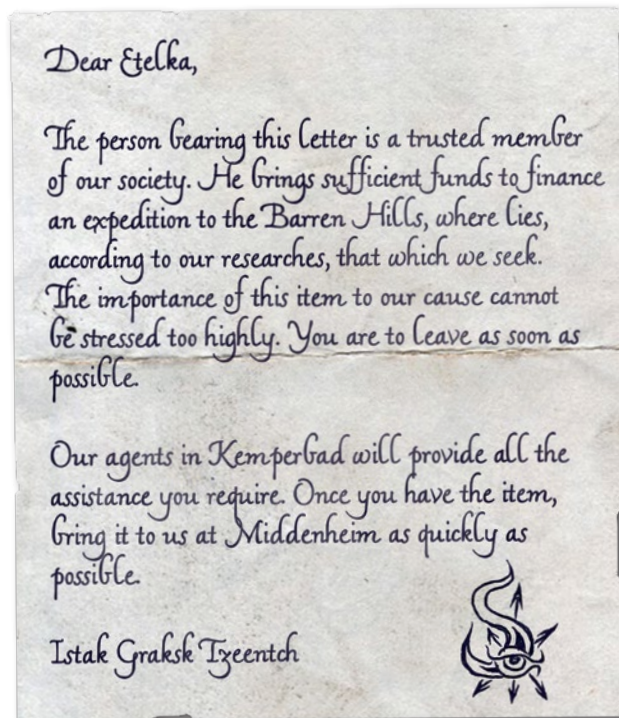 Dear Etelka,
The person bearing this letter is a trusted member
of our society. He brings sufficient funds to finance
an expedition to the Barren Hills, where lies,
according to our researches, that which we seek.
The importance of this item to our cause cannot
be stressed too highly. You are to leave as soon as
possible.
Our agents in Kemperbad will provide all the
assistance you require. Once you have the item,
bring it to us at Middenheim as quickly as
possible.
Istak Graksk Tzeentch